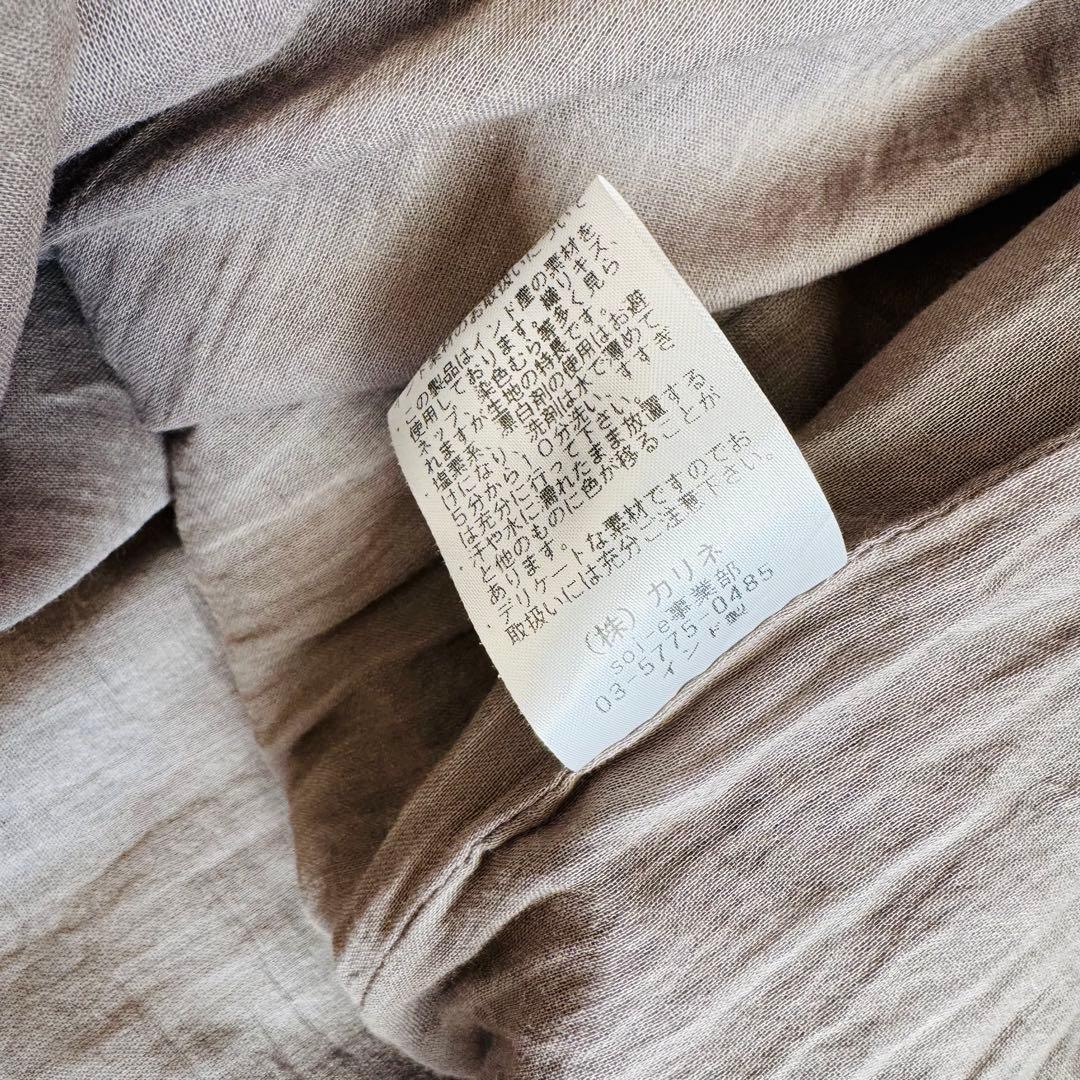 この製品はインド産の素材を
使用しております。織りキズ、
ネップ、染色むら等多く見ら
れますが、生地の特長です。
塩素系漂白剤の使用はお避
け
5分から10分洗い、
は充分に行って下さい。
汗や水に濡れたまま放置する
と他のものに色が移ることが
あります。
・デリケートな素材ですのでお
取扱いには充分ご注意下さい。
(株)カリネ
soi-e事業部
03-5775-0485
インド製